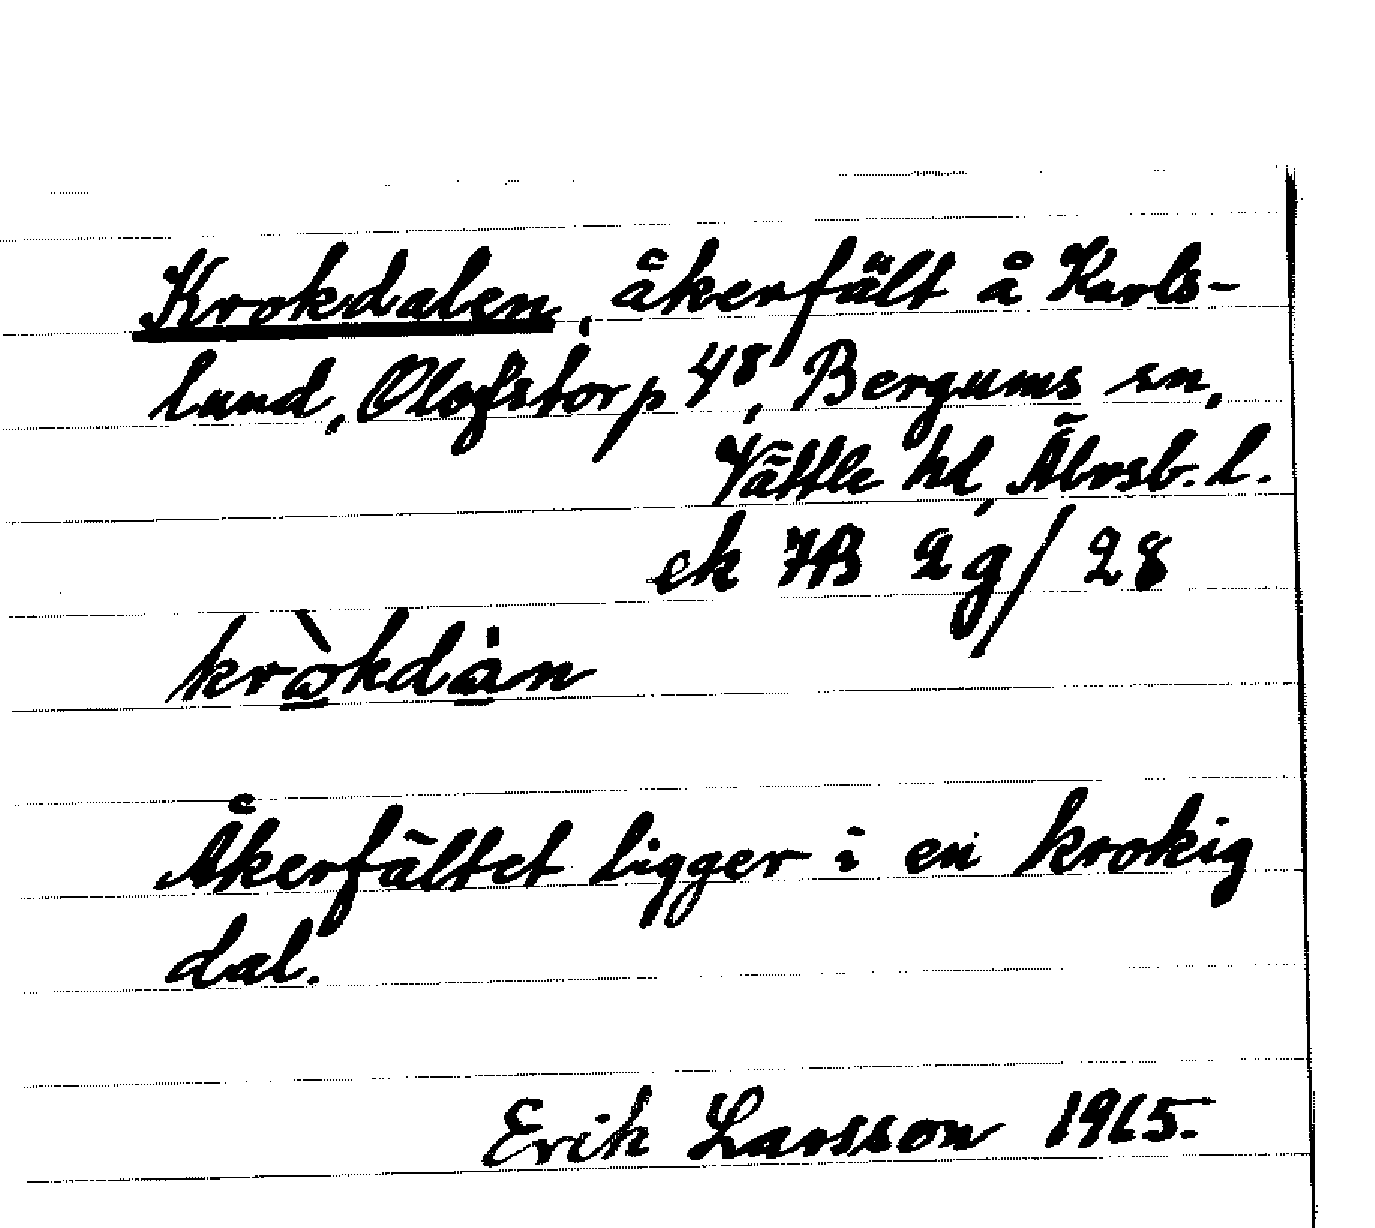 Krokdalen, åkerfält å Karls-
lund, Olofstorp 4⁸, Bergums sn,
Vättle hd, Älvsb. l.
ek 7B 2g/28
kròkdȧn
Åkerfältet ligger i en krokig
dal.
Erik Larsson 1965.